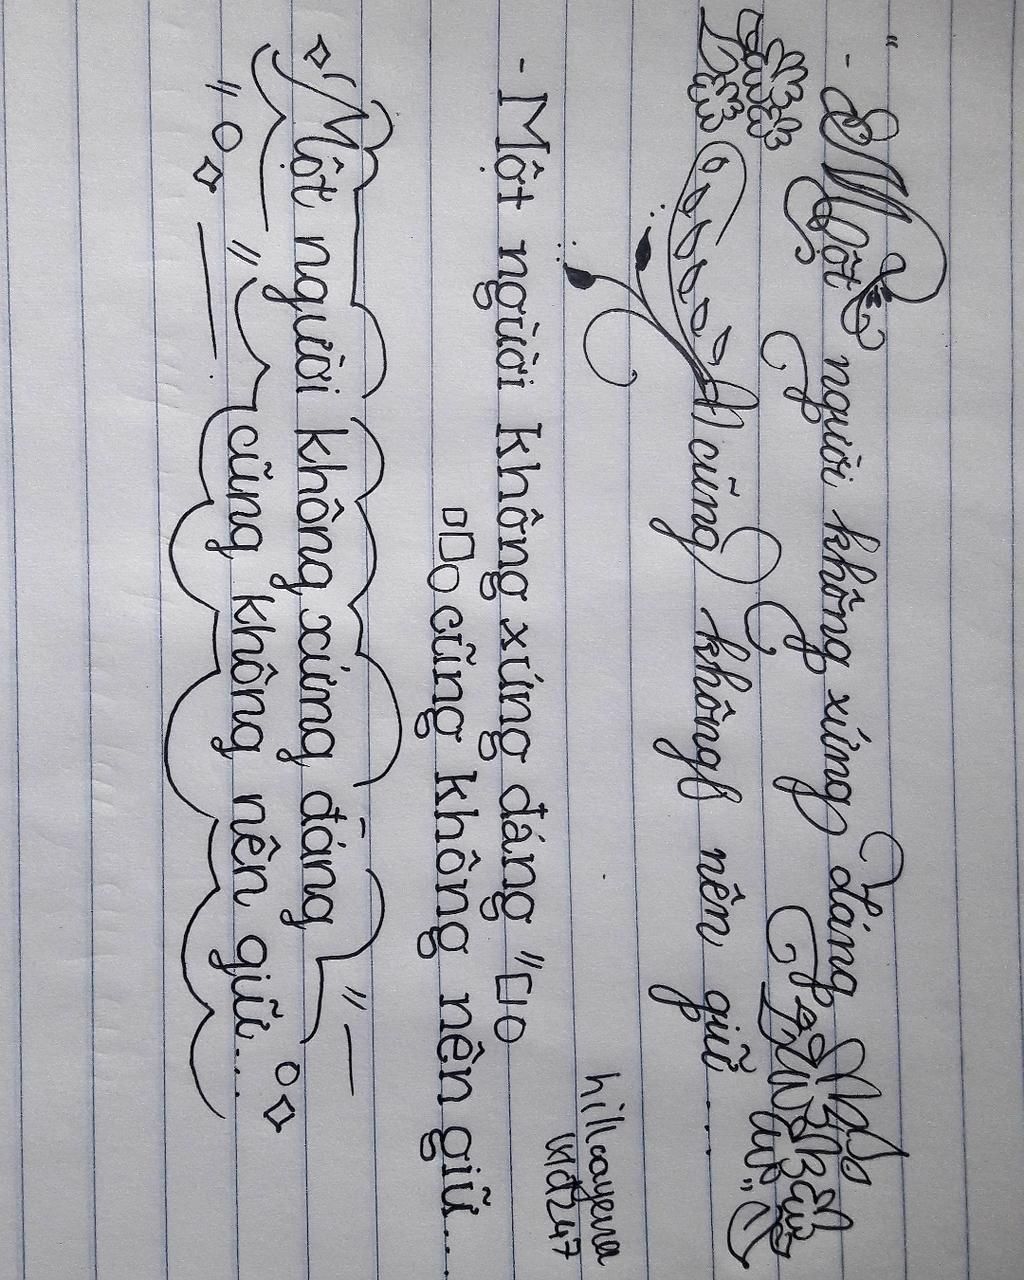 "
- Một người không xứng đáng
cũng không nên giữ....
"
hillcayena
- Một người không xứng đáng "
cũng không nên giữ...
Một người không xứng đáng "
" " cũng không nên giữ....